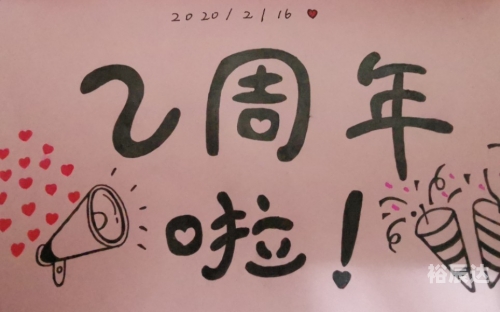 2020/2/16
2周年
啦！
裕辰达